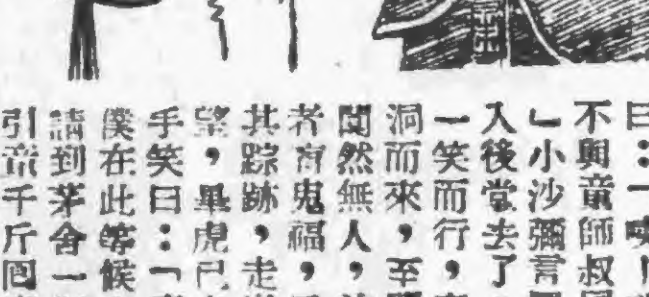 曰：一噢！
不與童師叔
」小沙彌言
入後堂去了
一笑而行，
洞而來，至
闃然無人，
者有鬼福，
其踪跡，走
望，畢虎已
手笑曰：「
僕在此等候
請到茅舍一
引童千斤回